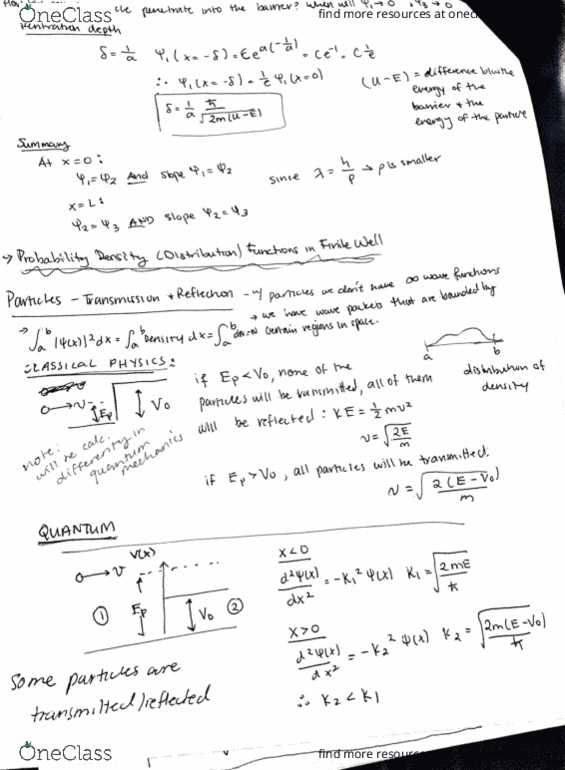 OneClass
find more resources at oneclass
the penetrate into the barrier? when will ψ₁→0, ψ₃→0
Penetration depth
δ = 1/a  ψ₁(x = -δ) = Ce^{a(-1/a)} = Ce⁻¹ = C 1/e
∴ ψ₁(x = -δ) = 1/e ψ₁(x=0)
δ = 1/a ℏ/√2m(U-E)
(U-E) = difference b/w the
energy of the
barrier + the
energy of the particle
Summary
At x=0:
ψ₁=ψ₂ And slope ψ₁=ψ₂
since λ = h/p → p is smaller
x=L:
ψ₂=ψ₃ AND slope ψ₂=ψ₃
→ Probability Density (Distribution) Functions in Finite Well
Particles - Transmission + Reflection - w/ particles we don't have ∞ wave functions
→ we have wave packets that are bounded by
certain regions in space.
→ ∫ₐᵇ |ψ(x)|² dx = ∫ₐᵇ Density dx = ∫ₐᵇ dN=N
a b
distribution of
density
CLASSICAL PHYSICS:
o→v Ep V₀
if Ep<V₀, none of the
particles will be transmitted, all of them
will be reflected: KE = ½mv²
v = √2E/m
note:
will be calc.
differently in
quantum
mechanics
if Ep>V₀, all particles will be transmitted.
v = √2(E-V₀)/m
QUANTUM
V(x)
o→v
① Ep V₀ ②
x<0
d²ψ(x)/dx² = -K₁² ψ(x)  K₁ = √2mE/ℏ
x>0
d²ψ(x)/dx² = -K₂² ψ(x)  K₂ = √2m(E-V₀)/ℏ
∴ K₂ < K₁
Some particles are
transmitted/reflected
OneClass
find more resour